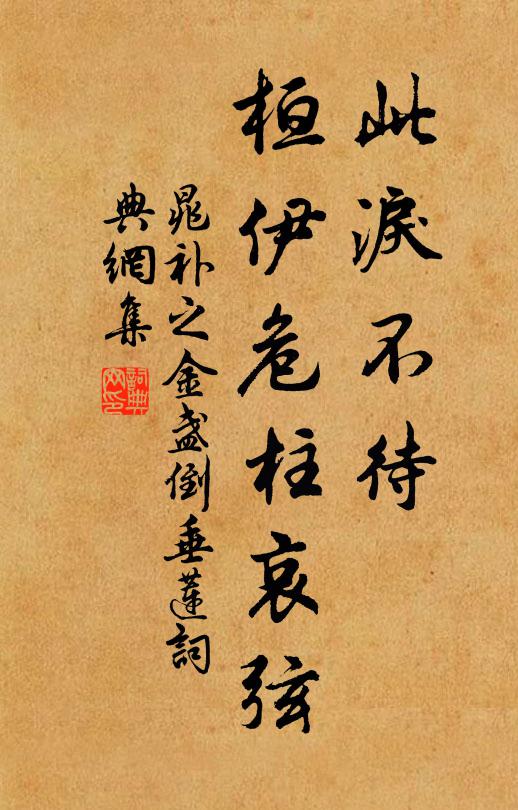 此淚不待
桓伊危柱哀弦
晁补之金盏倒垂蓮詞
典網集
詞典